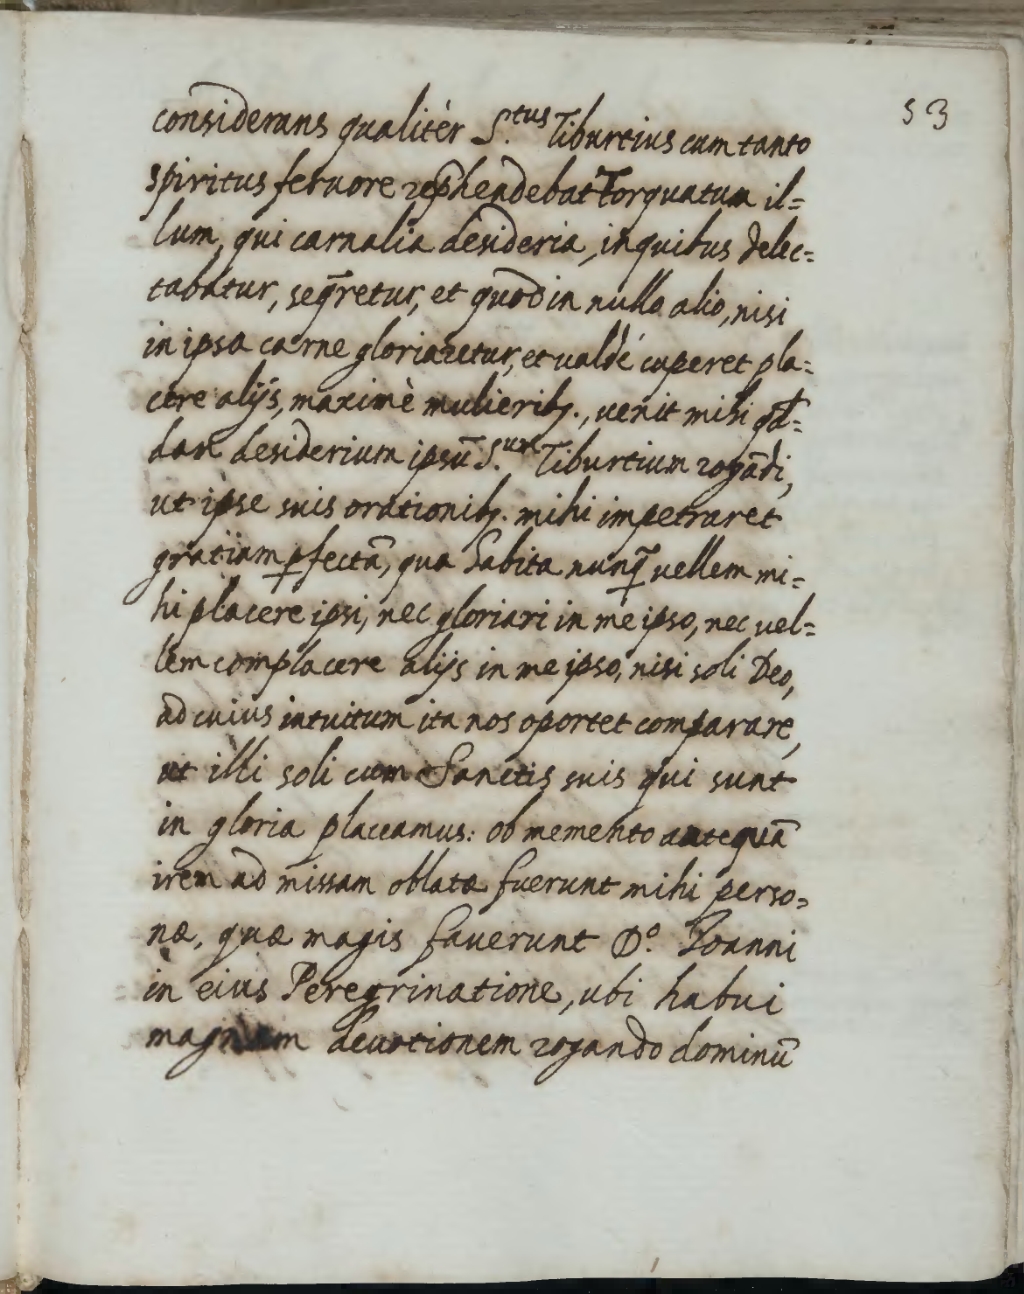 53
considerans qualitèr S.tus Tiburtius cum tanto
spiritus feruore rep̄hendebat Torquatum il=
lum, qui carnalia desideria, in quibus delec=
tabatur, seq̄retur, et quod in nullo alio, nisi
in ipsa carne gloriaretur, et valdé cuperet pla=
cere alijs, maximè mulierib9., uenit mihi qd̄=
dam desiderium ipsū S.um Tiburtium rogādi,
ut ipse suis orationib9. mihi impetraret
gratiam p̱fectā, qua habita nunq̄ vellem mi=
hi placere ipsi, nec gloriari in me ipso, nec vel=
lem complacere alijs in me ipso, nisi soli Deo,
ad cuius intuitum ita nos oportet comparare,
ut illi soli cum Sanctis suis qui sunt
in gloria placeamus: ob memento antequā
irem ad missam oblatæ fuerunt mihi perso=
næ, quæ magis fauerunt Do. Joanni
in eius Peregrinatione, ubi habui
magnam deuotionem rogando dominū